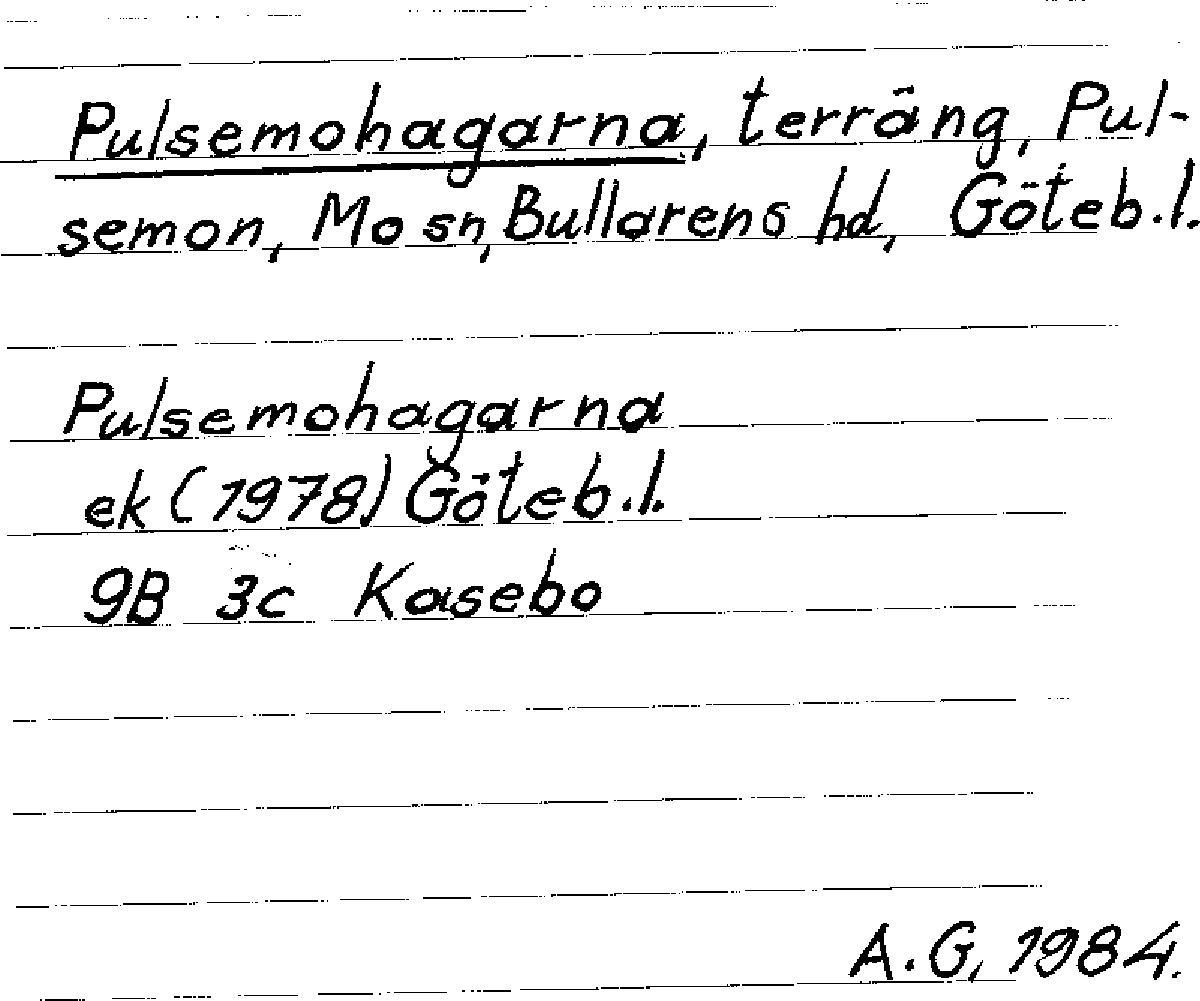 Pulsemohagarna, terräng, Pul-
semon, Mo sn, Bullarens hd, Göteb.l.
Pulsemohagarna
ek (1978) Göteb.l.
9B 3c Kasebo
A.G, 1984.